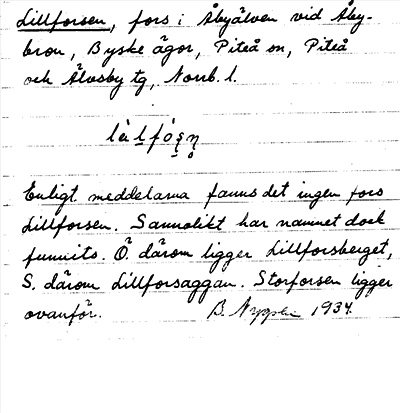 Lillforsen, fors i Åbyälven vid Åby-
bron, Byske ägor, Piteå sn, Piteå
och Älvsby tg, Norrb. l.
Enligt meddelarna fanns det ingen fors
Lillforsen. Sannolikt har namnet dock
funnits. Ö. därom ligger Lillforsberget,
S. därom Lillforsaggan. Storforsen ligger
ovanför.
B. 1934.